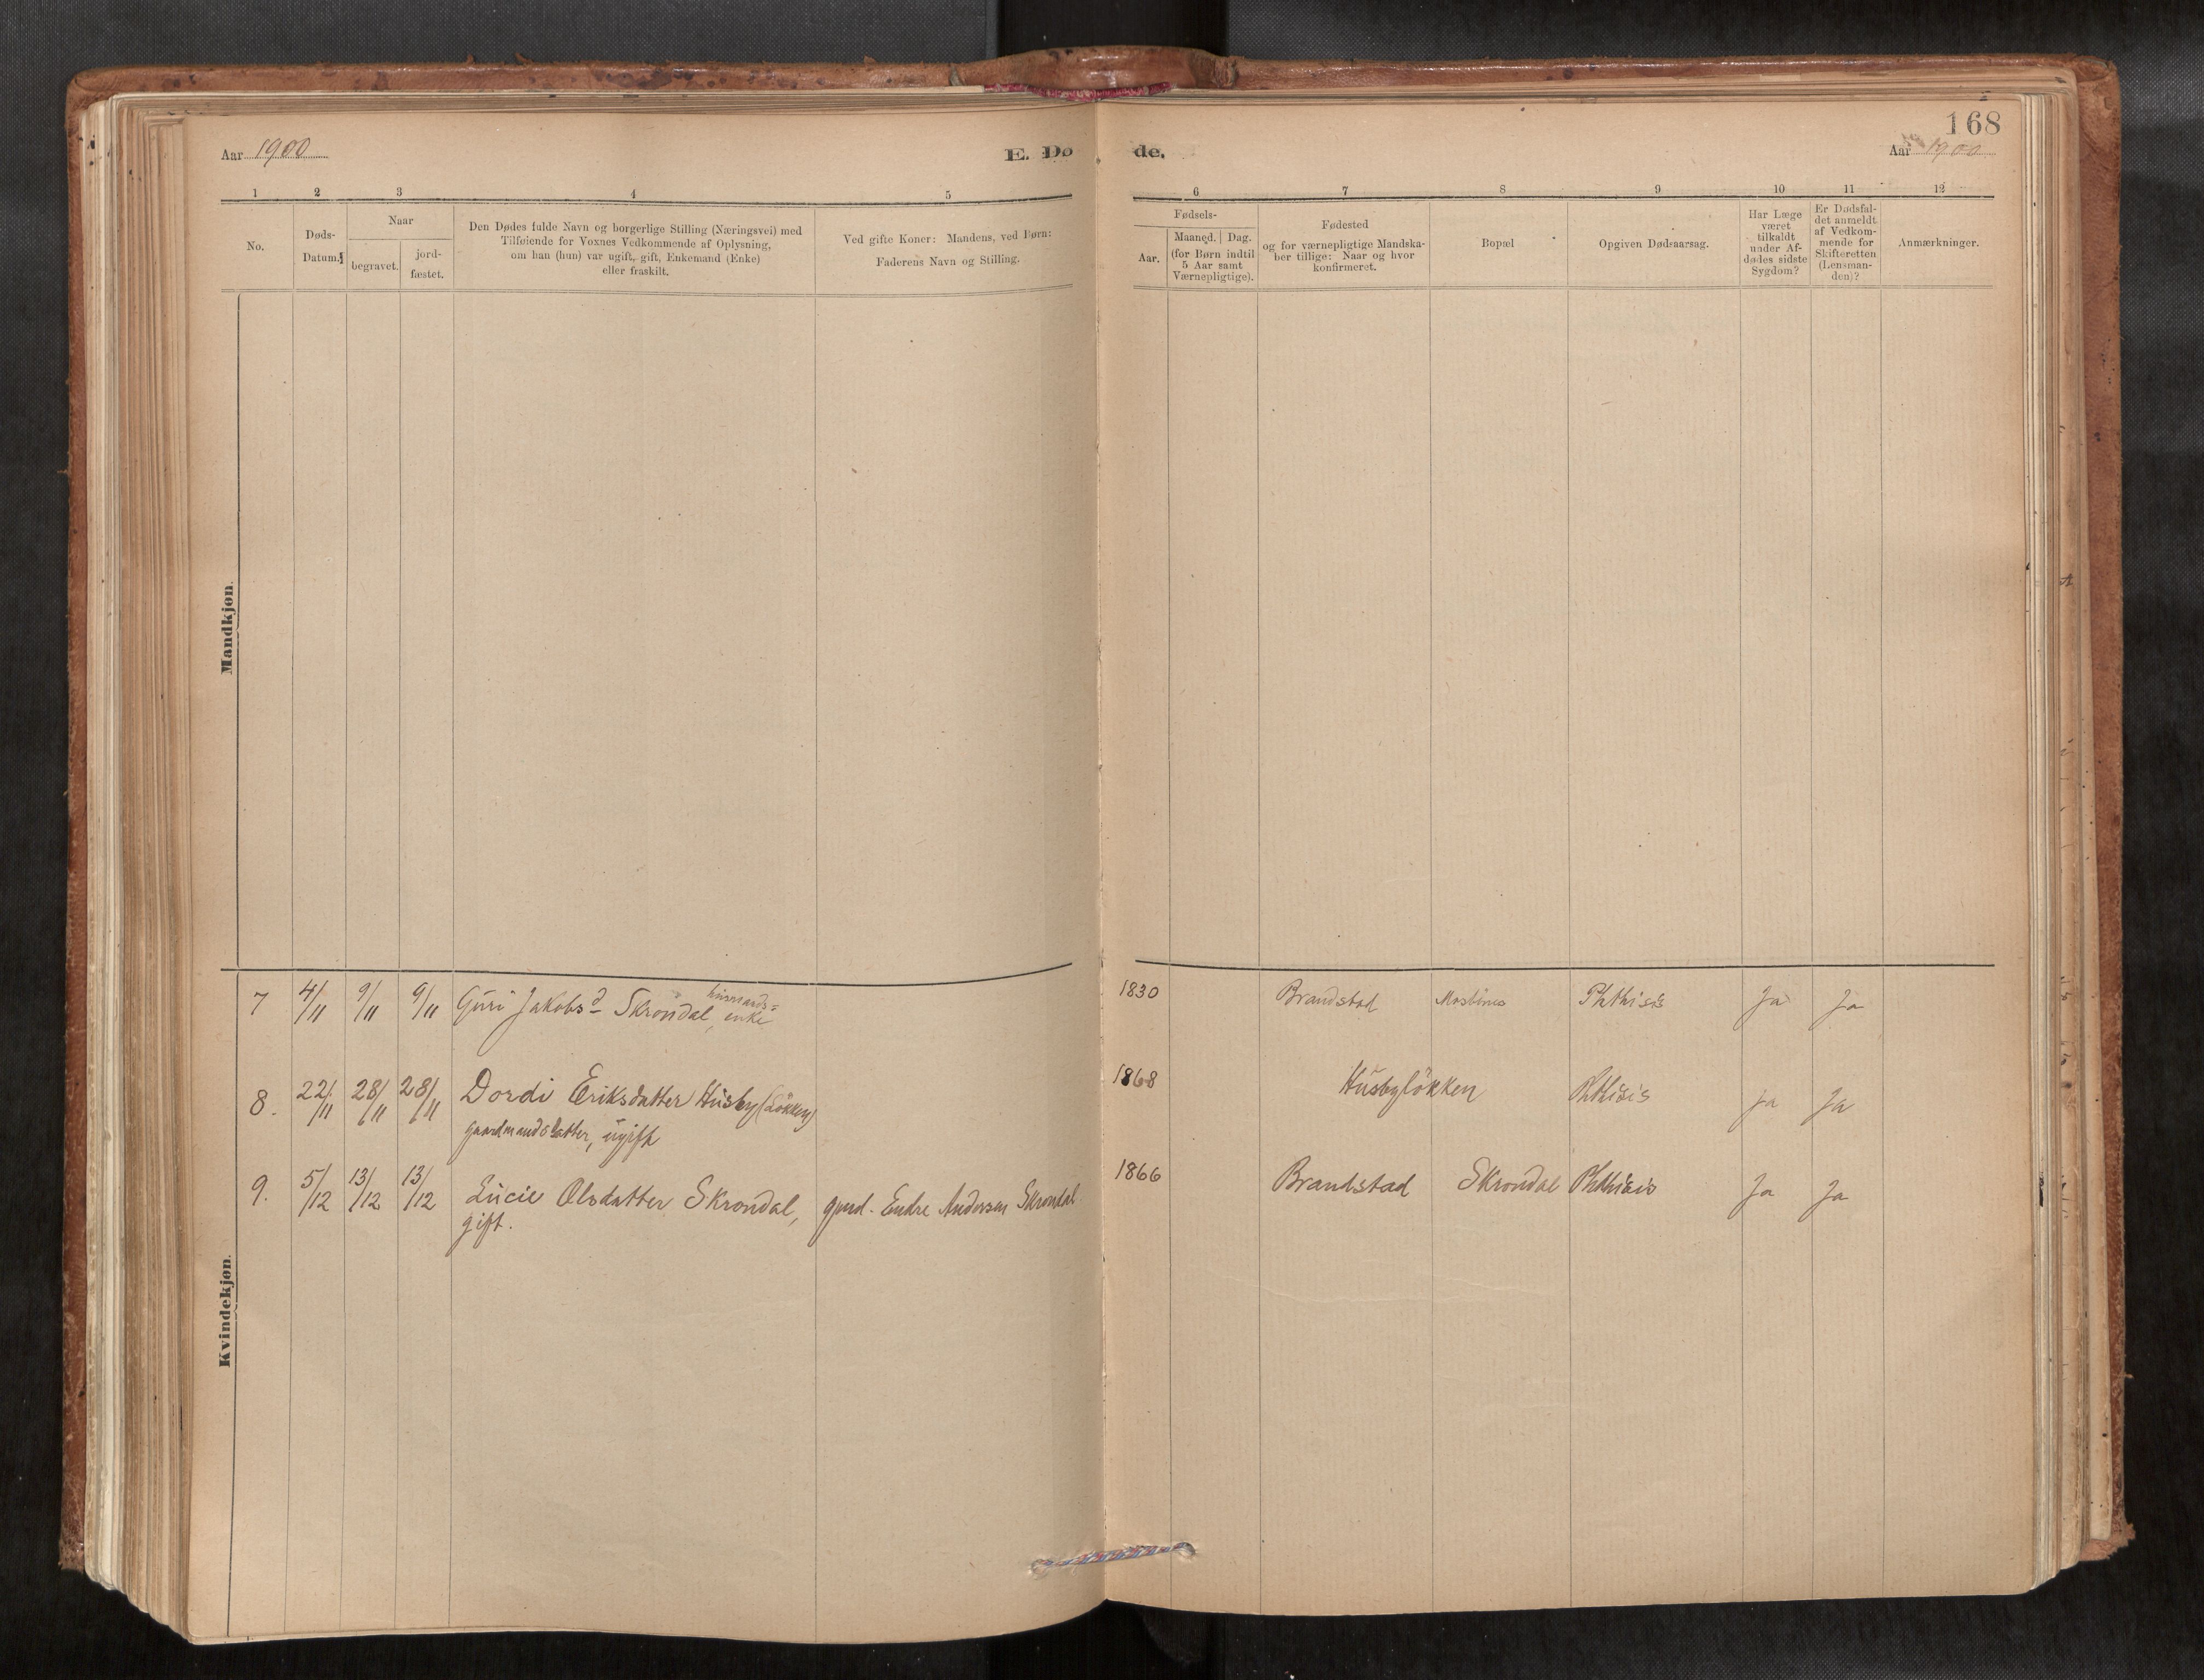 168
Aar 1900
E. Dø
de.
Aar 1900
1 2 3 4 5
6 7 8 9 10 11 12
No.
Døds-
Datum.
Naar
begravet.
jord-
fæstet.
Den Dødes fulde Navn og borgerlige Stilling (Næringsvei) med
Tilføiende for Voxnes Vedkommende af Oplysning,
om han (hun) var ugift, gift, Enkemand (Enke)
eller fraskilt.
Ved gifte Koner: Mandens, ved Børn:
Faderens Navn og Stilling.
Fødsels-
Aar.
Maaned. Dag.
(for Børn indtil
5 Aar samt
Værnepligtige).
Fødested
og for værnepligtige Mandska-
ber tillige: Naar og hvor
konfirmeret.
Bopæl
Opgiven Dødsaarsag.
Har Læge
været
tilkaldt
under Af-
dødes sidste
Sygdom?
Er Dødsfal-
det anmeldt
af Vedkom-
mende for
Skifteretten
(Lensman-
den)?
Anmærkninger.
Mandkjøn.
Kvindekjøn.
7 4/11 9/11 9/11 Guri Jakobsd Skrondal, husmands=
enke
1830 Brandstad Phthisis Ja Ja
8. 22/11 28/11 28/11 Dordi Eriksdatter Husby (Løkken)
gaardmandsdatter, ugift
1868 Husbyløkken Phthisis Ja Ja
9. 5/12 13/12 13/12 Lucie Olsdatter Skrondal, gmd. Endre Andersen Skrondal
gift.
1866 Brandstad Skrondal Phthisis Ja Ja